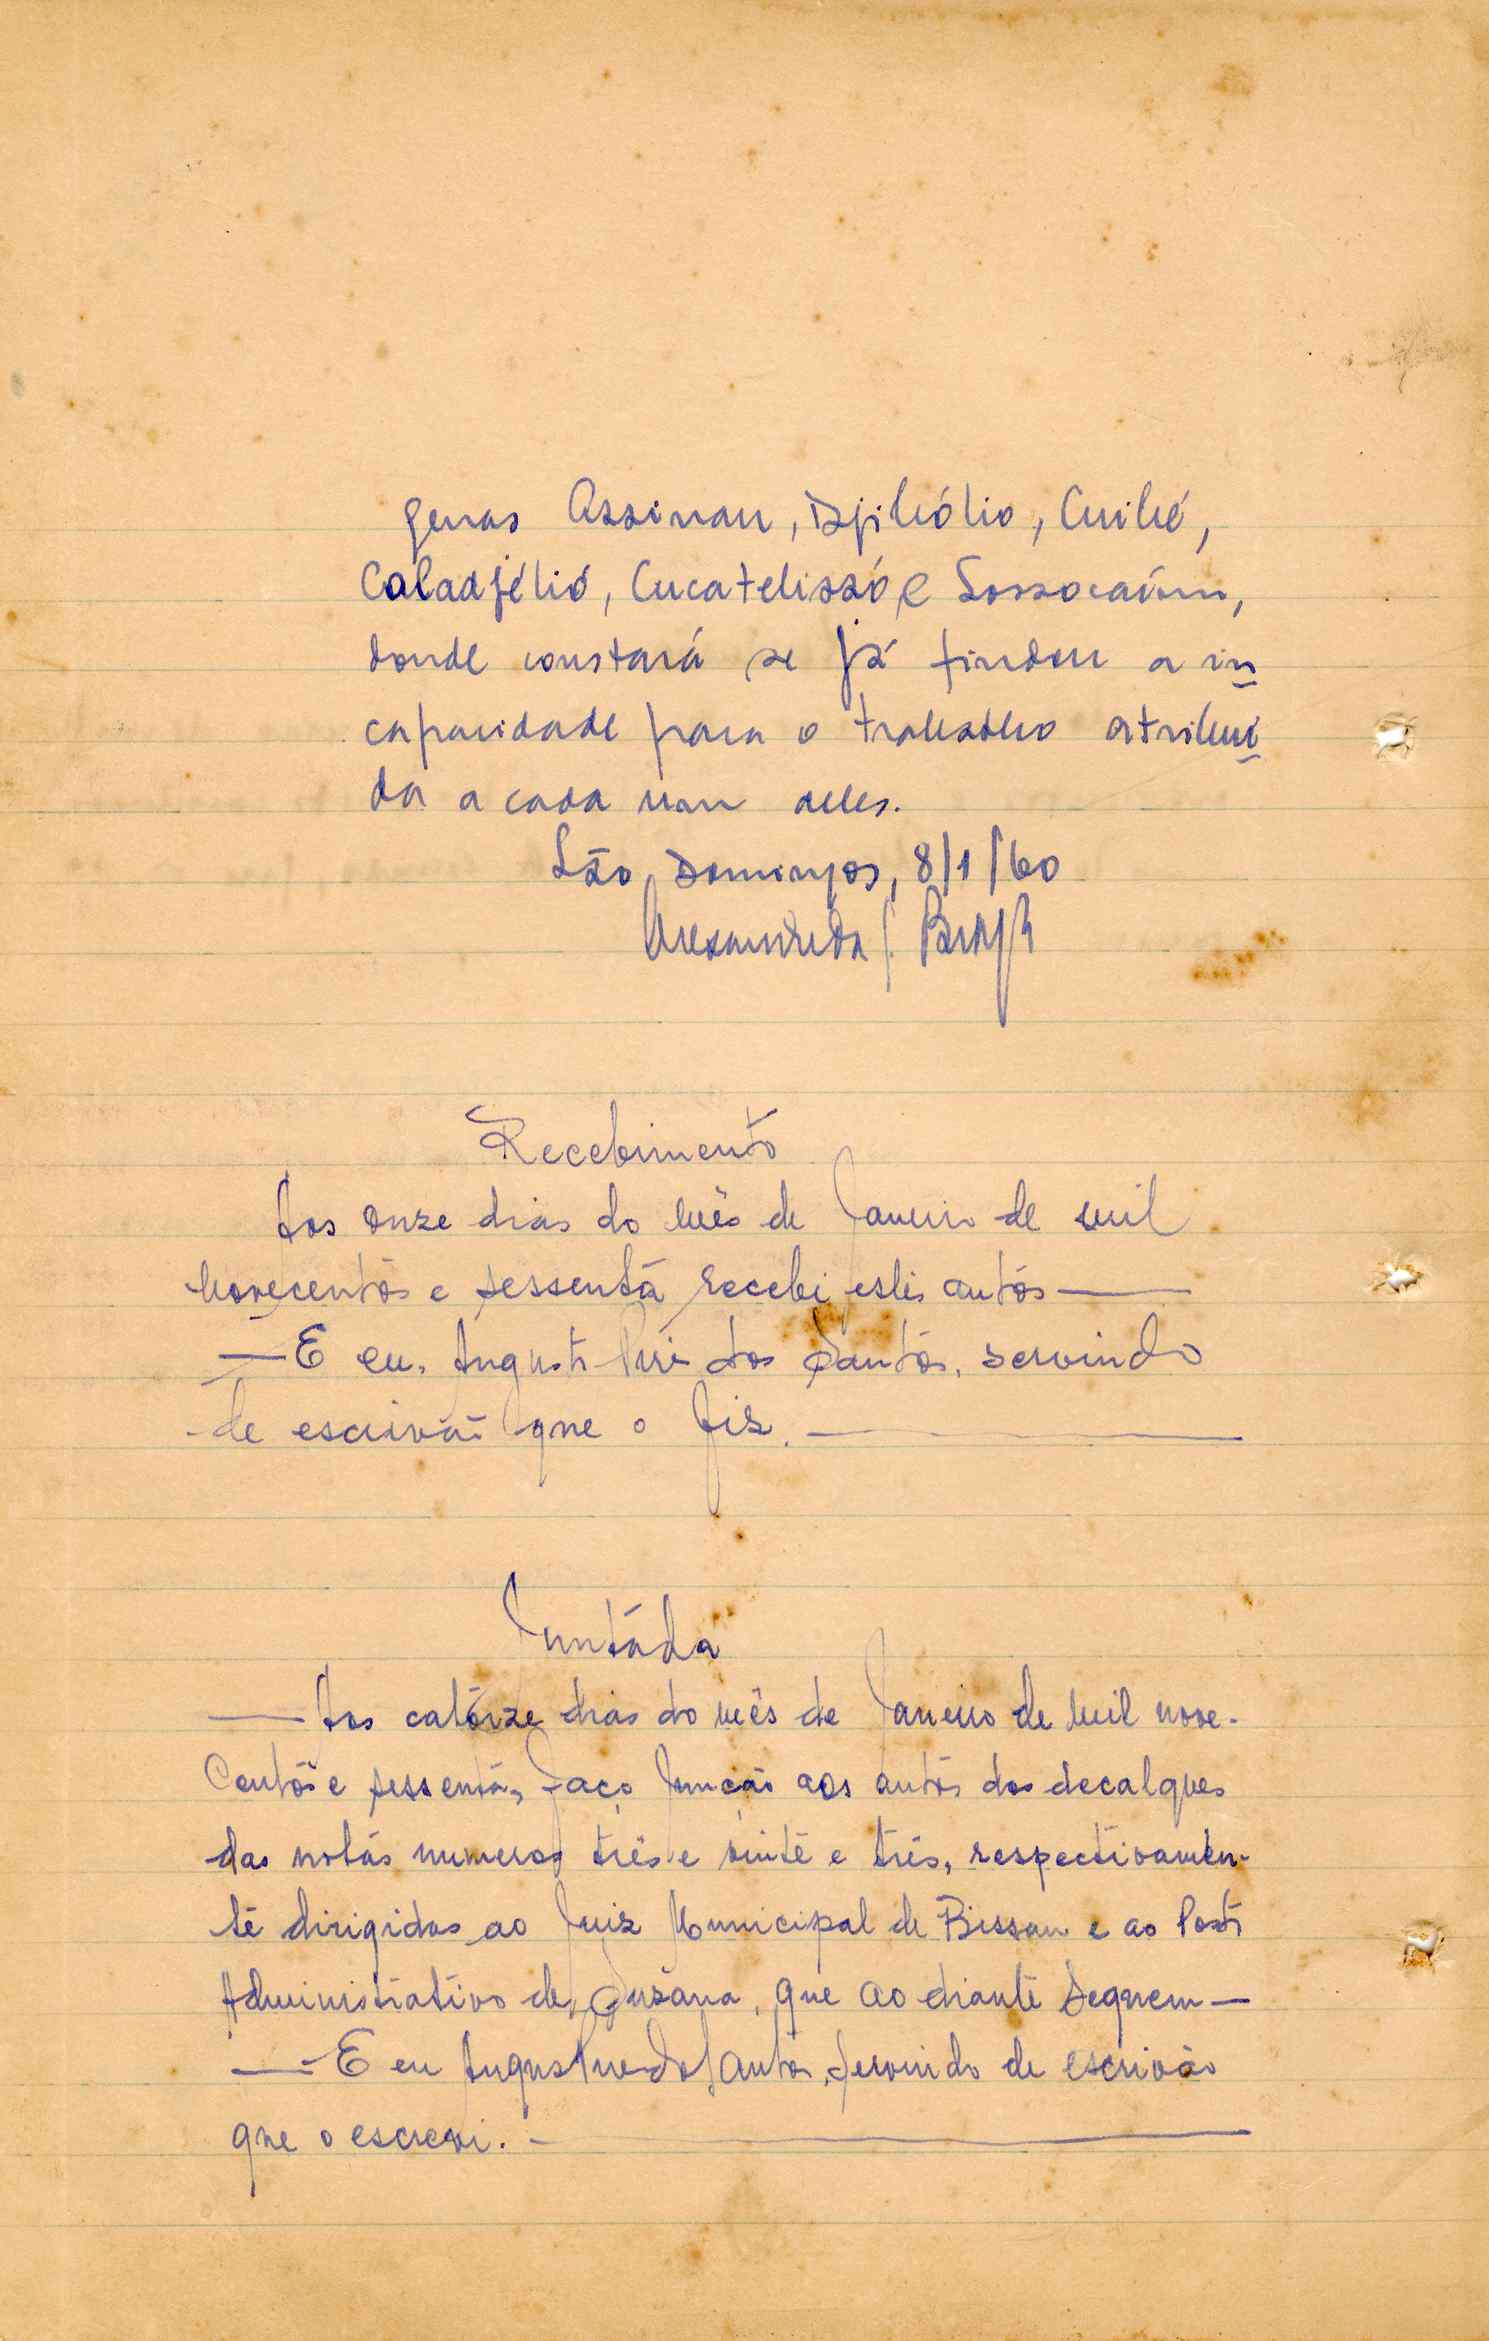 genas Assinau, Djibólio, Cuibé,
Caladjélió, Cucatelissó e Sossocaúm,
donde constará se já findou a in
capacidade para o trabalho atribuí
da a cada um deles.
São Domingos, 8/1/60
Recebimento
Aos onze dias do mês de Janeiro de mil
novecentos e sessenta recebi estes autos —
— E eu, Augusto Pires dos Santos, servindo
de escrivão que o fiz. —
Juntáda
— Aos catórze dias do mês de Janeiro de mil nove-
centos e sessenta, faço junção aos autos dos decalques
das notas numeros três e vinte e três, respectivamen-
te dirigidas ao Juiz Municipal de Bissau e ao Posto
Administrativo de Suzana, que ao diante seguem —
— E eu Augusto Pires dos Santos, servindo de escrivão
que o escrevi. —